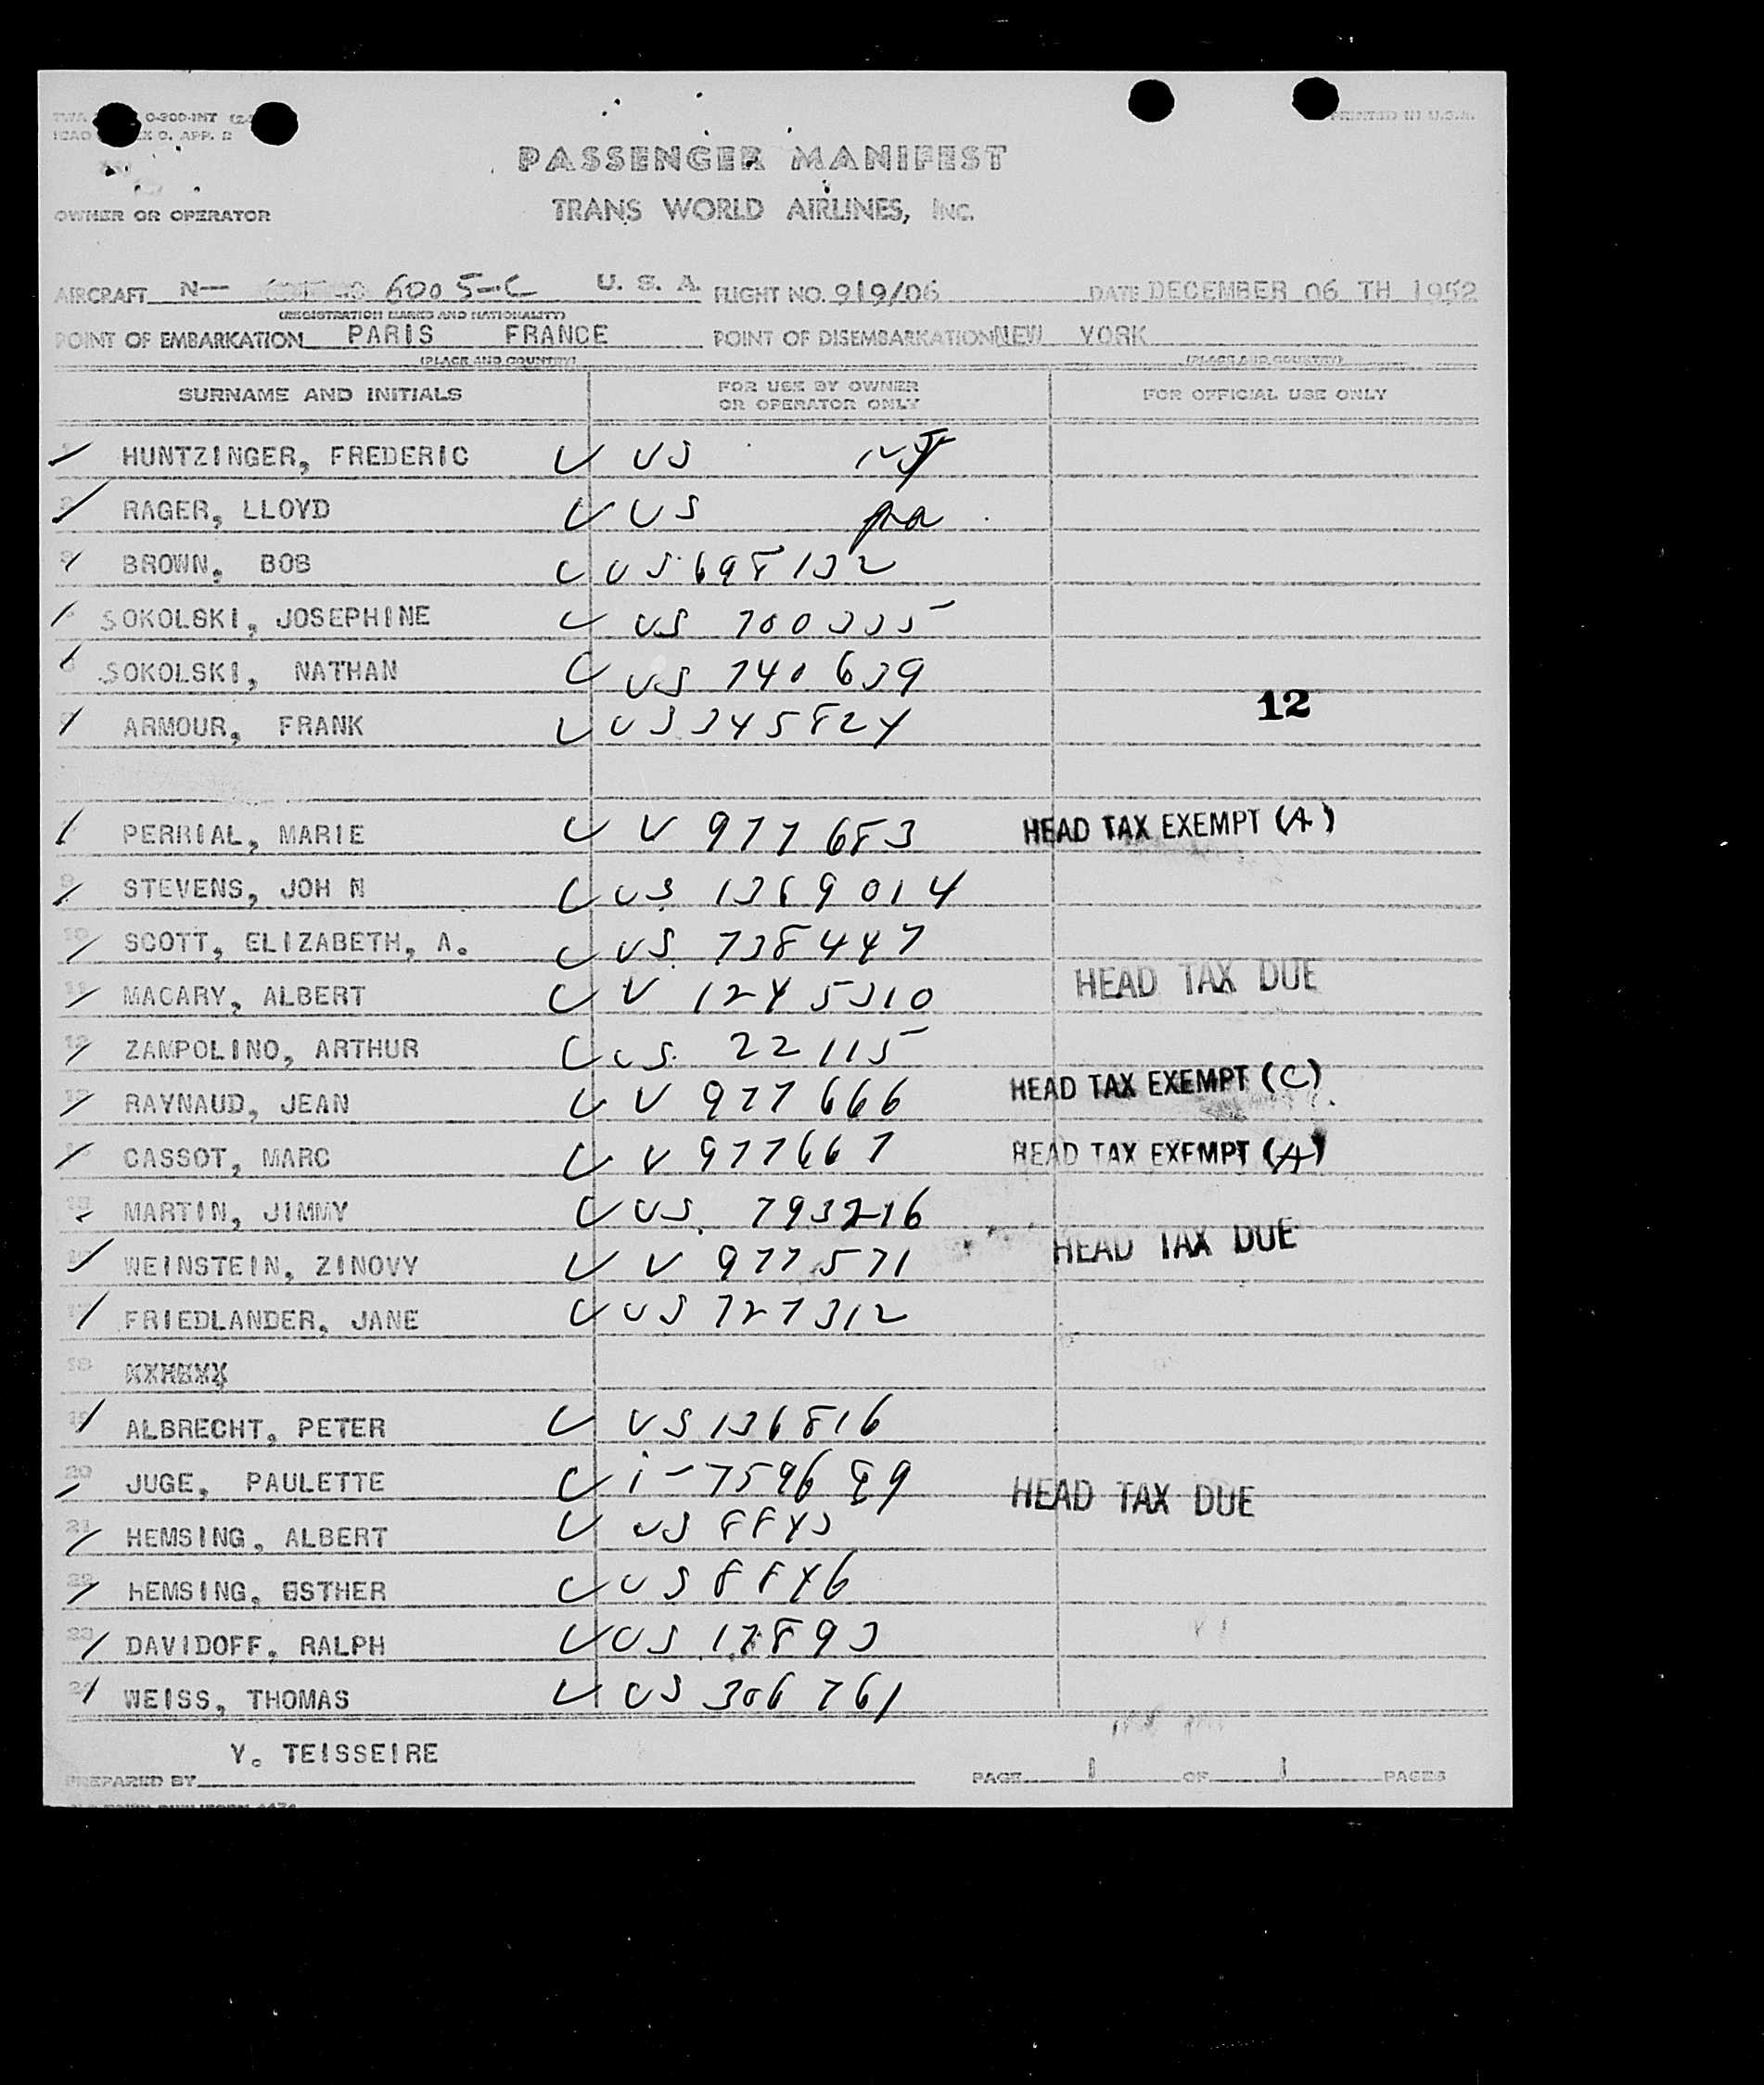 O-300-INT
APP. 2
PRINTED IN U.S.A.
PASSENGER MANIFEST
OWNER OR OPERATOR TRANS WORLD AIRLINES, INC.
AIRCRAFT N— 6005-C U. S. A. FLIGHT NO. 919/06 DATE DECEMBER 06 TH 1952
(REGISTRATION MARKS AND NATIONALITY)
POINT OF EMBARKATION PARIS FRANCE POINT OF DISEMBARKATION NEW YORK
(PLACE AND COUNTRY) (PLACE AND COUNTRY)
SURNAME AND INITIALS FOR USE BY OWNER OR OPERATOR ONLY FOR OFFICIAL USE ONLY
HUNTZINGER, FREDERIC US
RAGER, LLOYD US
BROWN, BOB US 698132
SOKOLSKI, JOSEPHINE US 700335
SOKOLSKI, NATHAN US 740639
12
ARMOUR, FRANK US 345824
PERRIAL, MARIE V 977683 HEAD TAX EXEMPT (A)
STEVENS, JOH N US 1369014
10 SCOTT, ELIZABETH, A. US 738447
11 MACARY, ALBERT V 1245310 HEAD TAX DUE
12 ZAMPOLINO, ARTHUR US 22115
RAYNAUD, JEAN V 977666 HEAD TAX EXEMPT (C)
CASSOT, MARC V 977667 HEAD TAX EXEMPT (A)
MARTIN, JIMMY US 793216
WEINSTEIN, ZINOVY V 977571 HEAD TAX DUE
FRIEDLANDER, JANE US 727312
18
19 ALBRECHT, PETER US 136816
20 JUGE, PAULETTE i-759689 HEAD TAX DUE
21 HEMSING, ALBERT US 8843
22 HEMSING, ESTHER US 8846
23 DAVIDOFF, RALPH US 17893
24 WEISS, THOMAS US 306761
Y. TEISSEIRE
PREPARED BY PAGE 1 OF 1 PAGES